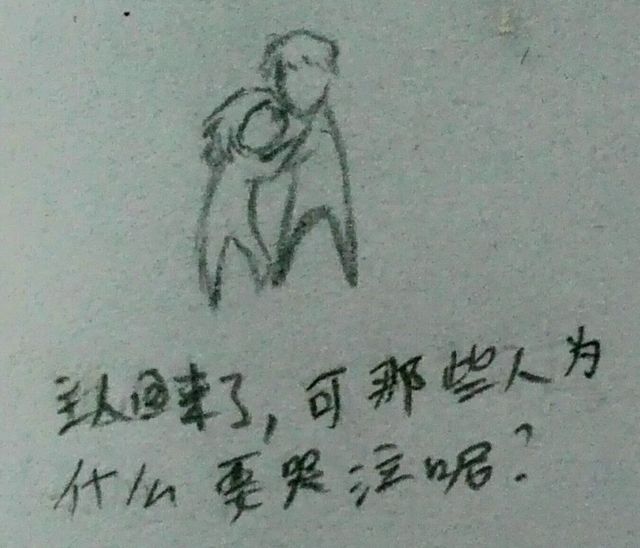 主人回来了，可那些人为
什么要哭泣呢？